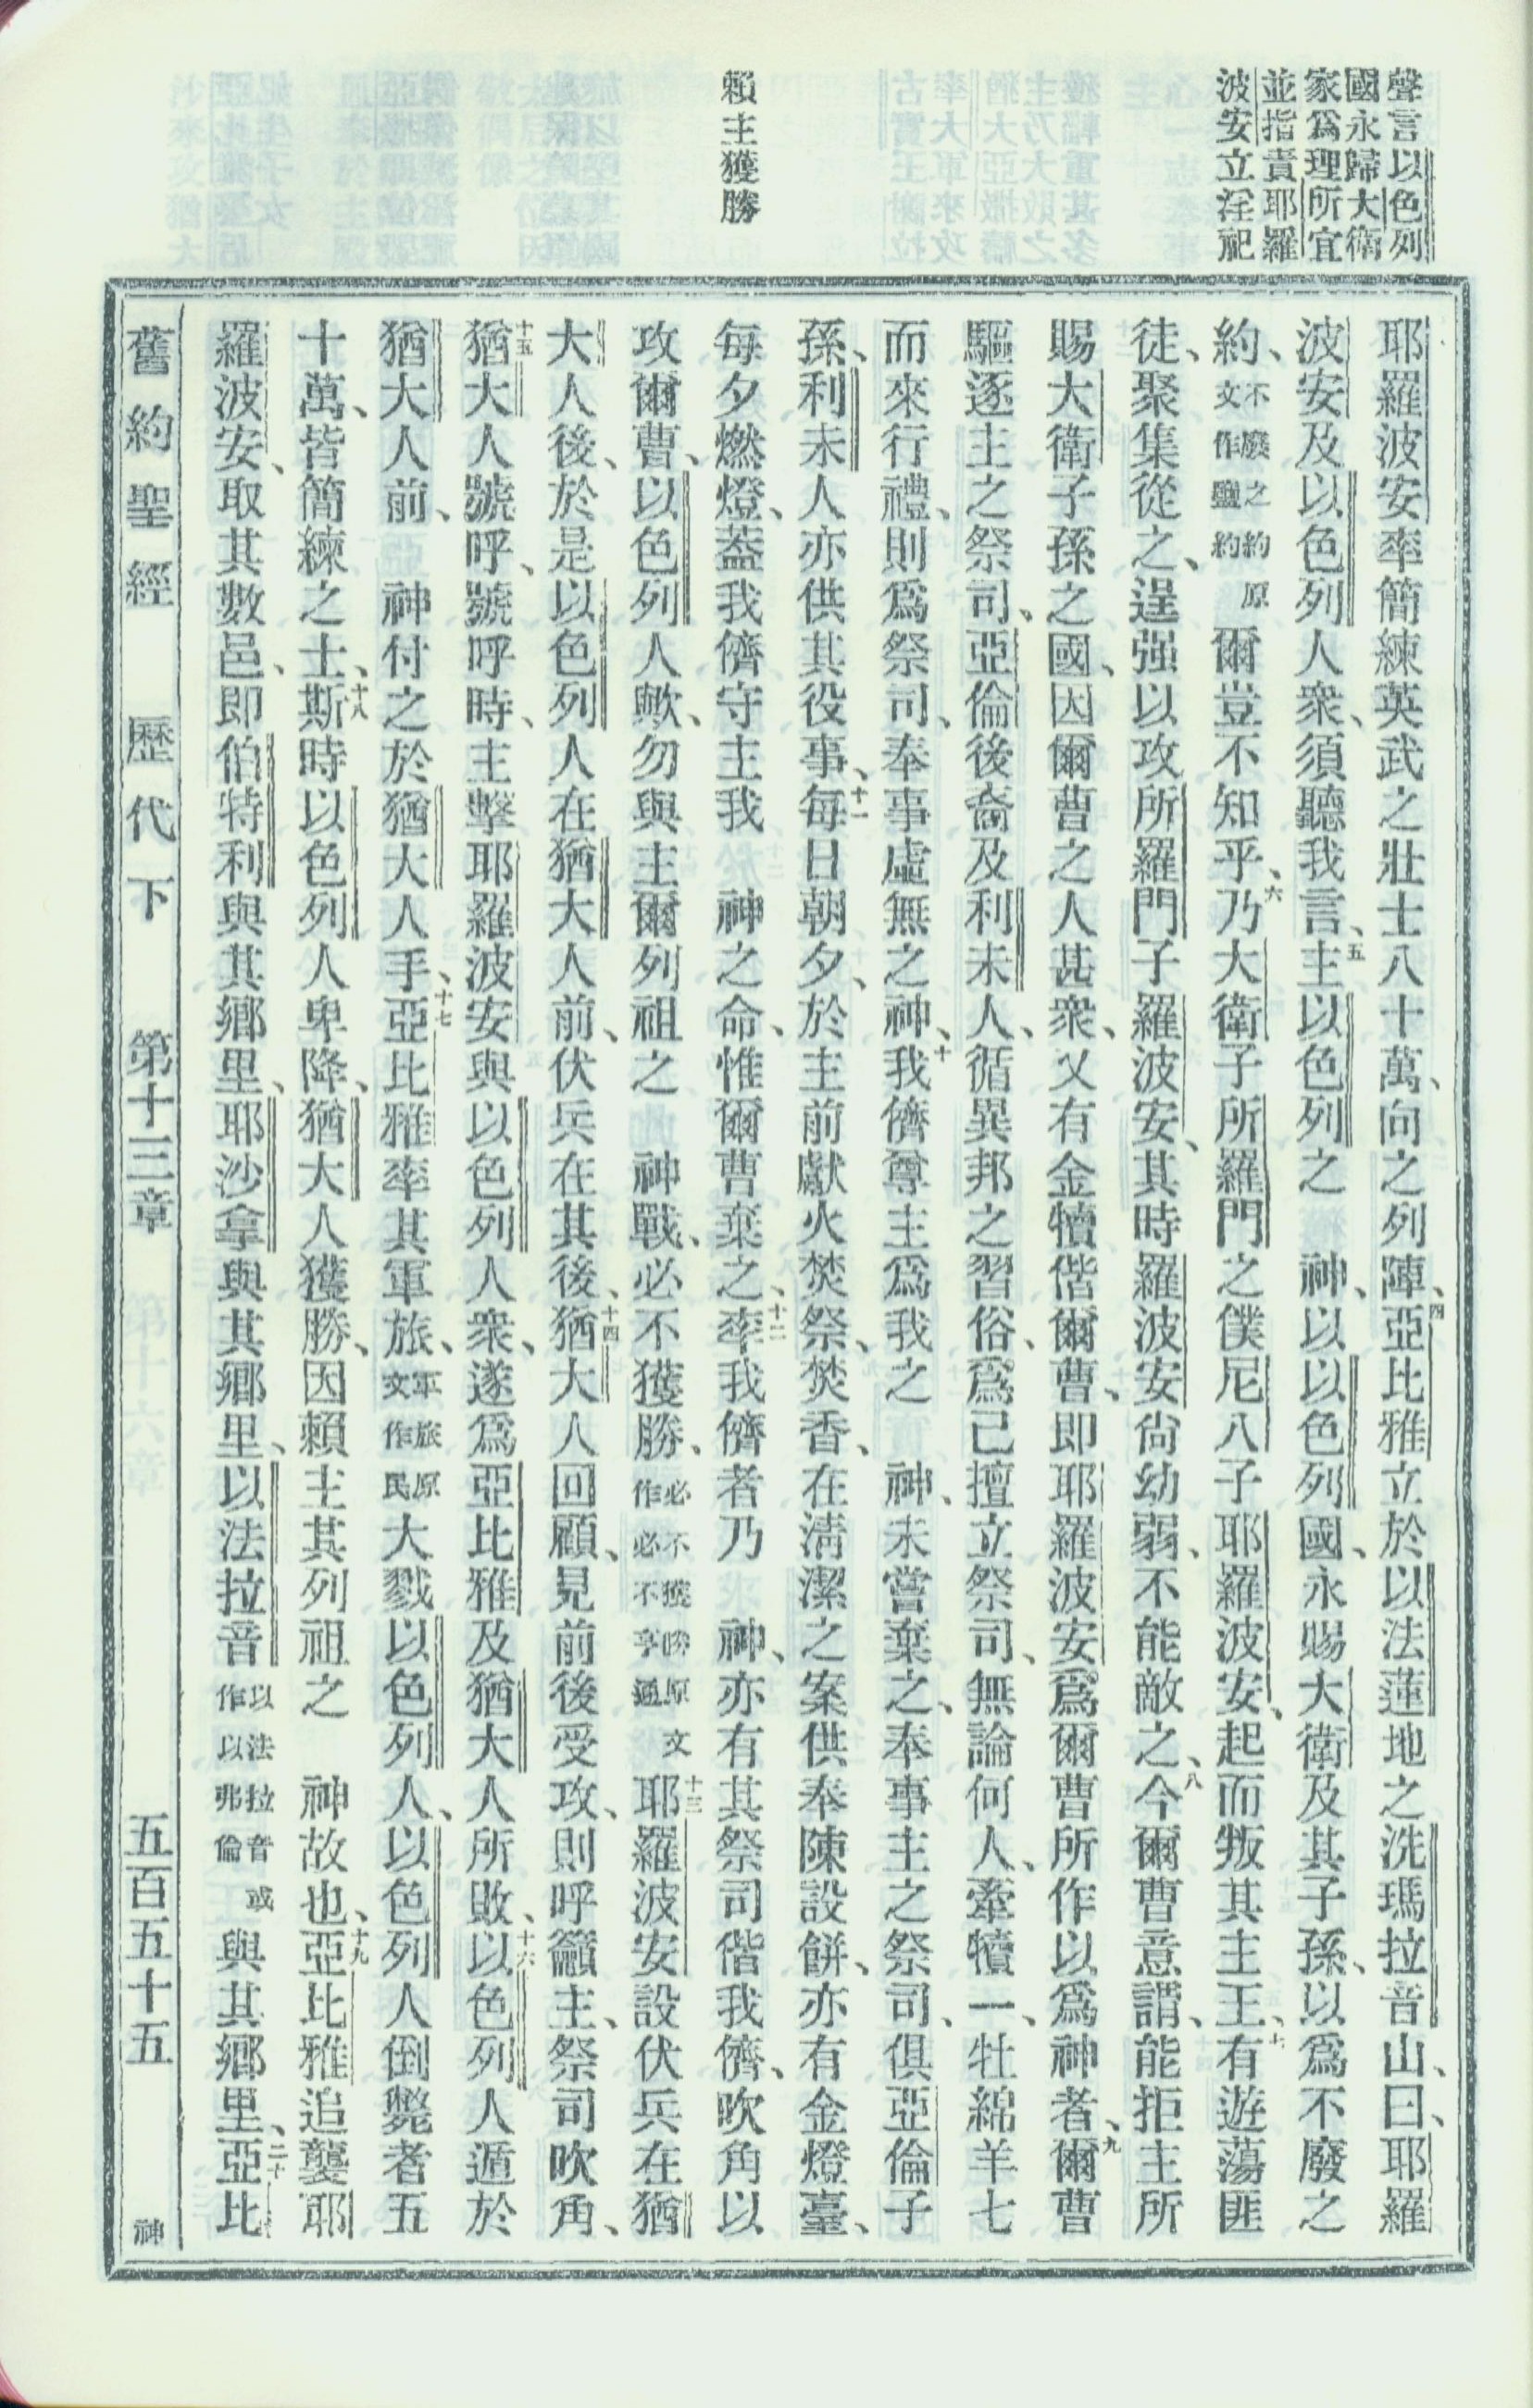 聲言以色列
國永歸大衛
家爲理所宜
並指責耶羅
波安立淫祀
賴主獲勝
耶羅波安率簡練英武之壯士八十萬、向之列陣、四亞比雅立於以法蓮地之洗瑪拉音山、曰、耶羅
波安及以色列人衆、須聽我言、五主以色列之 神、以以色列國、永賜大衛及其子孫、以爲不廢之
約、不廢之約原文作鹽約爾豈不知乎、六乃大衛子所羅門之僕尼八子耶羅波安、起而叛其主王、七有遊蕩匪
徒、聚集從之、逞强以攻所羅門子羅波安、其時羅波安尙幼弱、不能敵之、八今爾曹意謂、能拒主所
賜大衛子孫之國、因爾曹之人甚衆、又有金犢偕爾曹、即耶羅波安爲爾曹所作以爲神者、九爾曹
驅逐主之祭司、亞倫後裔及利未人、循異邦之習俗、爲己擅立祭司、無論何人、牽犢一、牡綿羊七
而來行禮、則爲祭司、奉事虛無之神、十我儕尊主爲我之 神、未嘗棄之、奉事主之祭司、俱亞倫子
孫、利未人亦供其役事、十一每日朝夕、於主前獻火焚祭、焚香、在淸潔之案供奉陳設餅、亦有金燈臺、
每夕燃燈、蓋我儕守主我 神之命、惟爾曹棄之、十二率我儕者乃 神、亦有其祭司偕我儕、吹角以
攻爾曹、以色列人歟、勿與主爾列祖之 神戰、必不獲勝、必不獲勝原文作必不亨通十三耶羅波安設伏兵在猶
大人後、於是以色列人在猶大人前、伏兵在其後、十四猶大人回顧、見前後受攻、則呼籲主、祭司吹角、
十五猶大人號呼、號呼時、主擊耶羅波安與以色列人衆、遂爲亞比雅及猶大人所敗、十六以色列人遁於
猶大人前、 神付之於猶大人手、十七亞比雅率其軍旅、軍旅原文作民大戮以色列人、以色列人倒斃者五
十萬、皆簡練之士、十八斯時以色列人卑降、猶大人獲勝、因賴主其列祖之 神故也、十九亞比雅追襲耶
羅波安、取其數邑、即伯特利與其鄕里、耶沙拿與其鄕里、以法拉音以法拉音或作以弗倫與其鄕里、二十亞比
舊約聖經 歷代下 第十三章 五百五十五 神